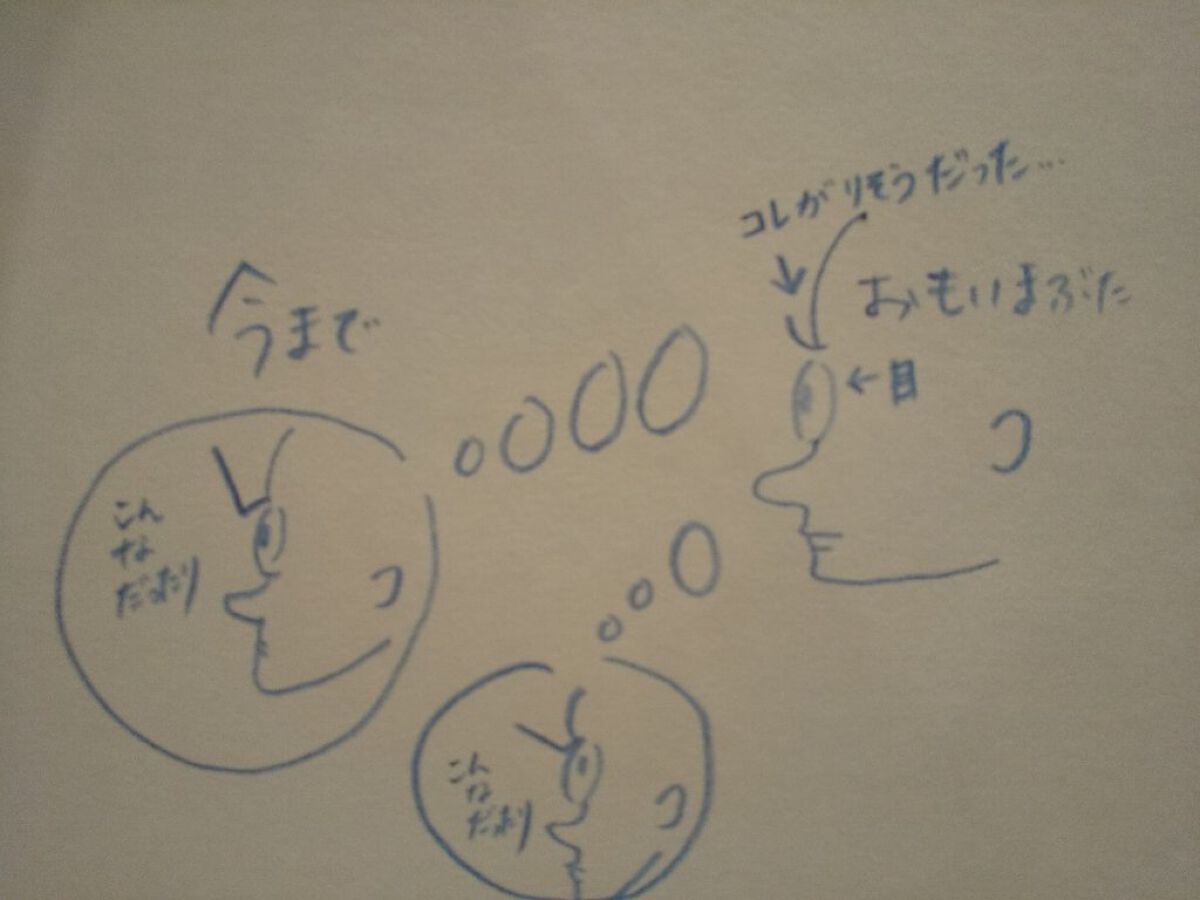 コレがりそうだった…
おもいまぶた
←目
今まで
こん
な
だったり
こん
な
だったり